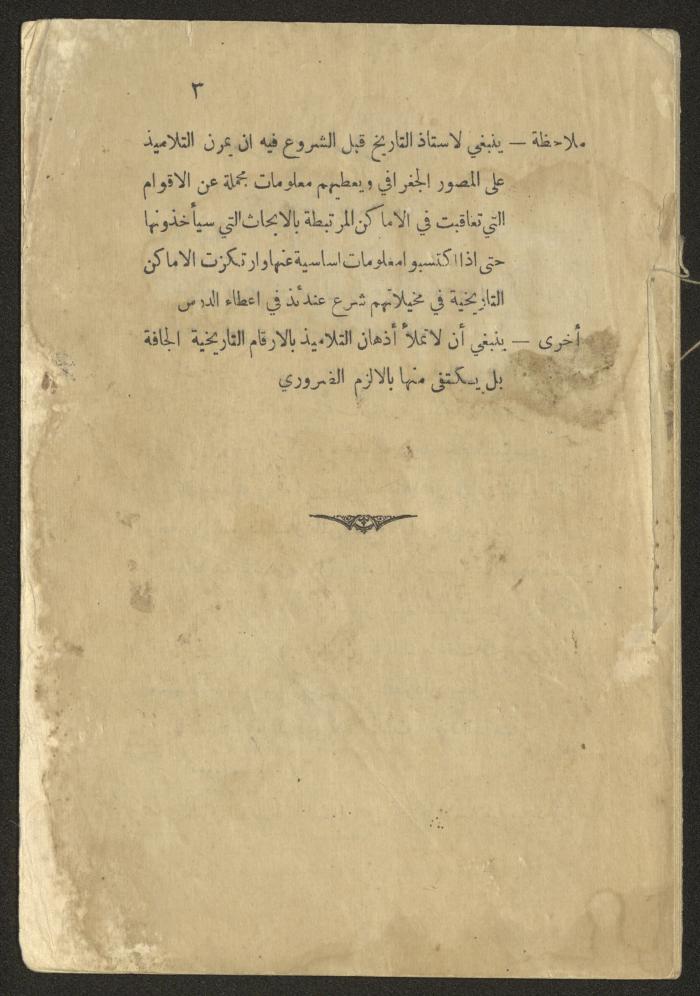 ٣
ملاحظة — ينبغي لاستاذ التاريخ قبل الشروع فيه ان يمرن التلاميذ
على المصور الجغرافي ويعطيهم معلومات مجملة عن الاقوام
التي تعاقبت في الاماكن المرتبطة بالابحاث التي سيأخذونها
حتى اذا اكتسبوا معلومات اساسية عنها وارتكزت الاماكن
التاريخية في مخيلاتهم شرع عندئذ في اعطاء الدرس
أخرى — ينبغي أن لاتملأ أذهان التلاميذ بالارقام التاريخية الجافة
بل يكتفى منها بالالزم الضروري